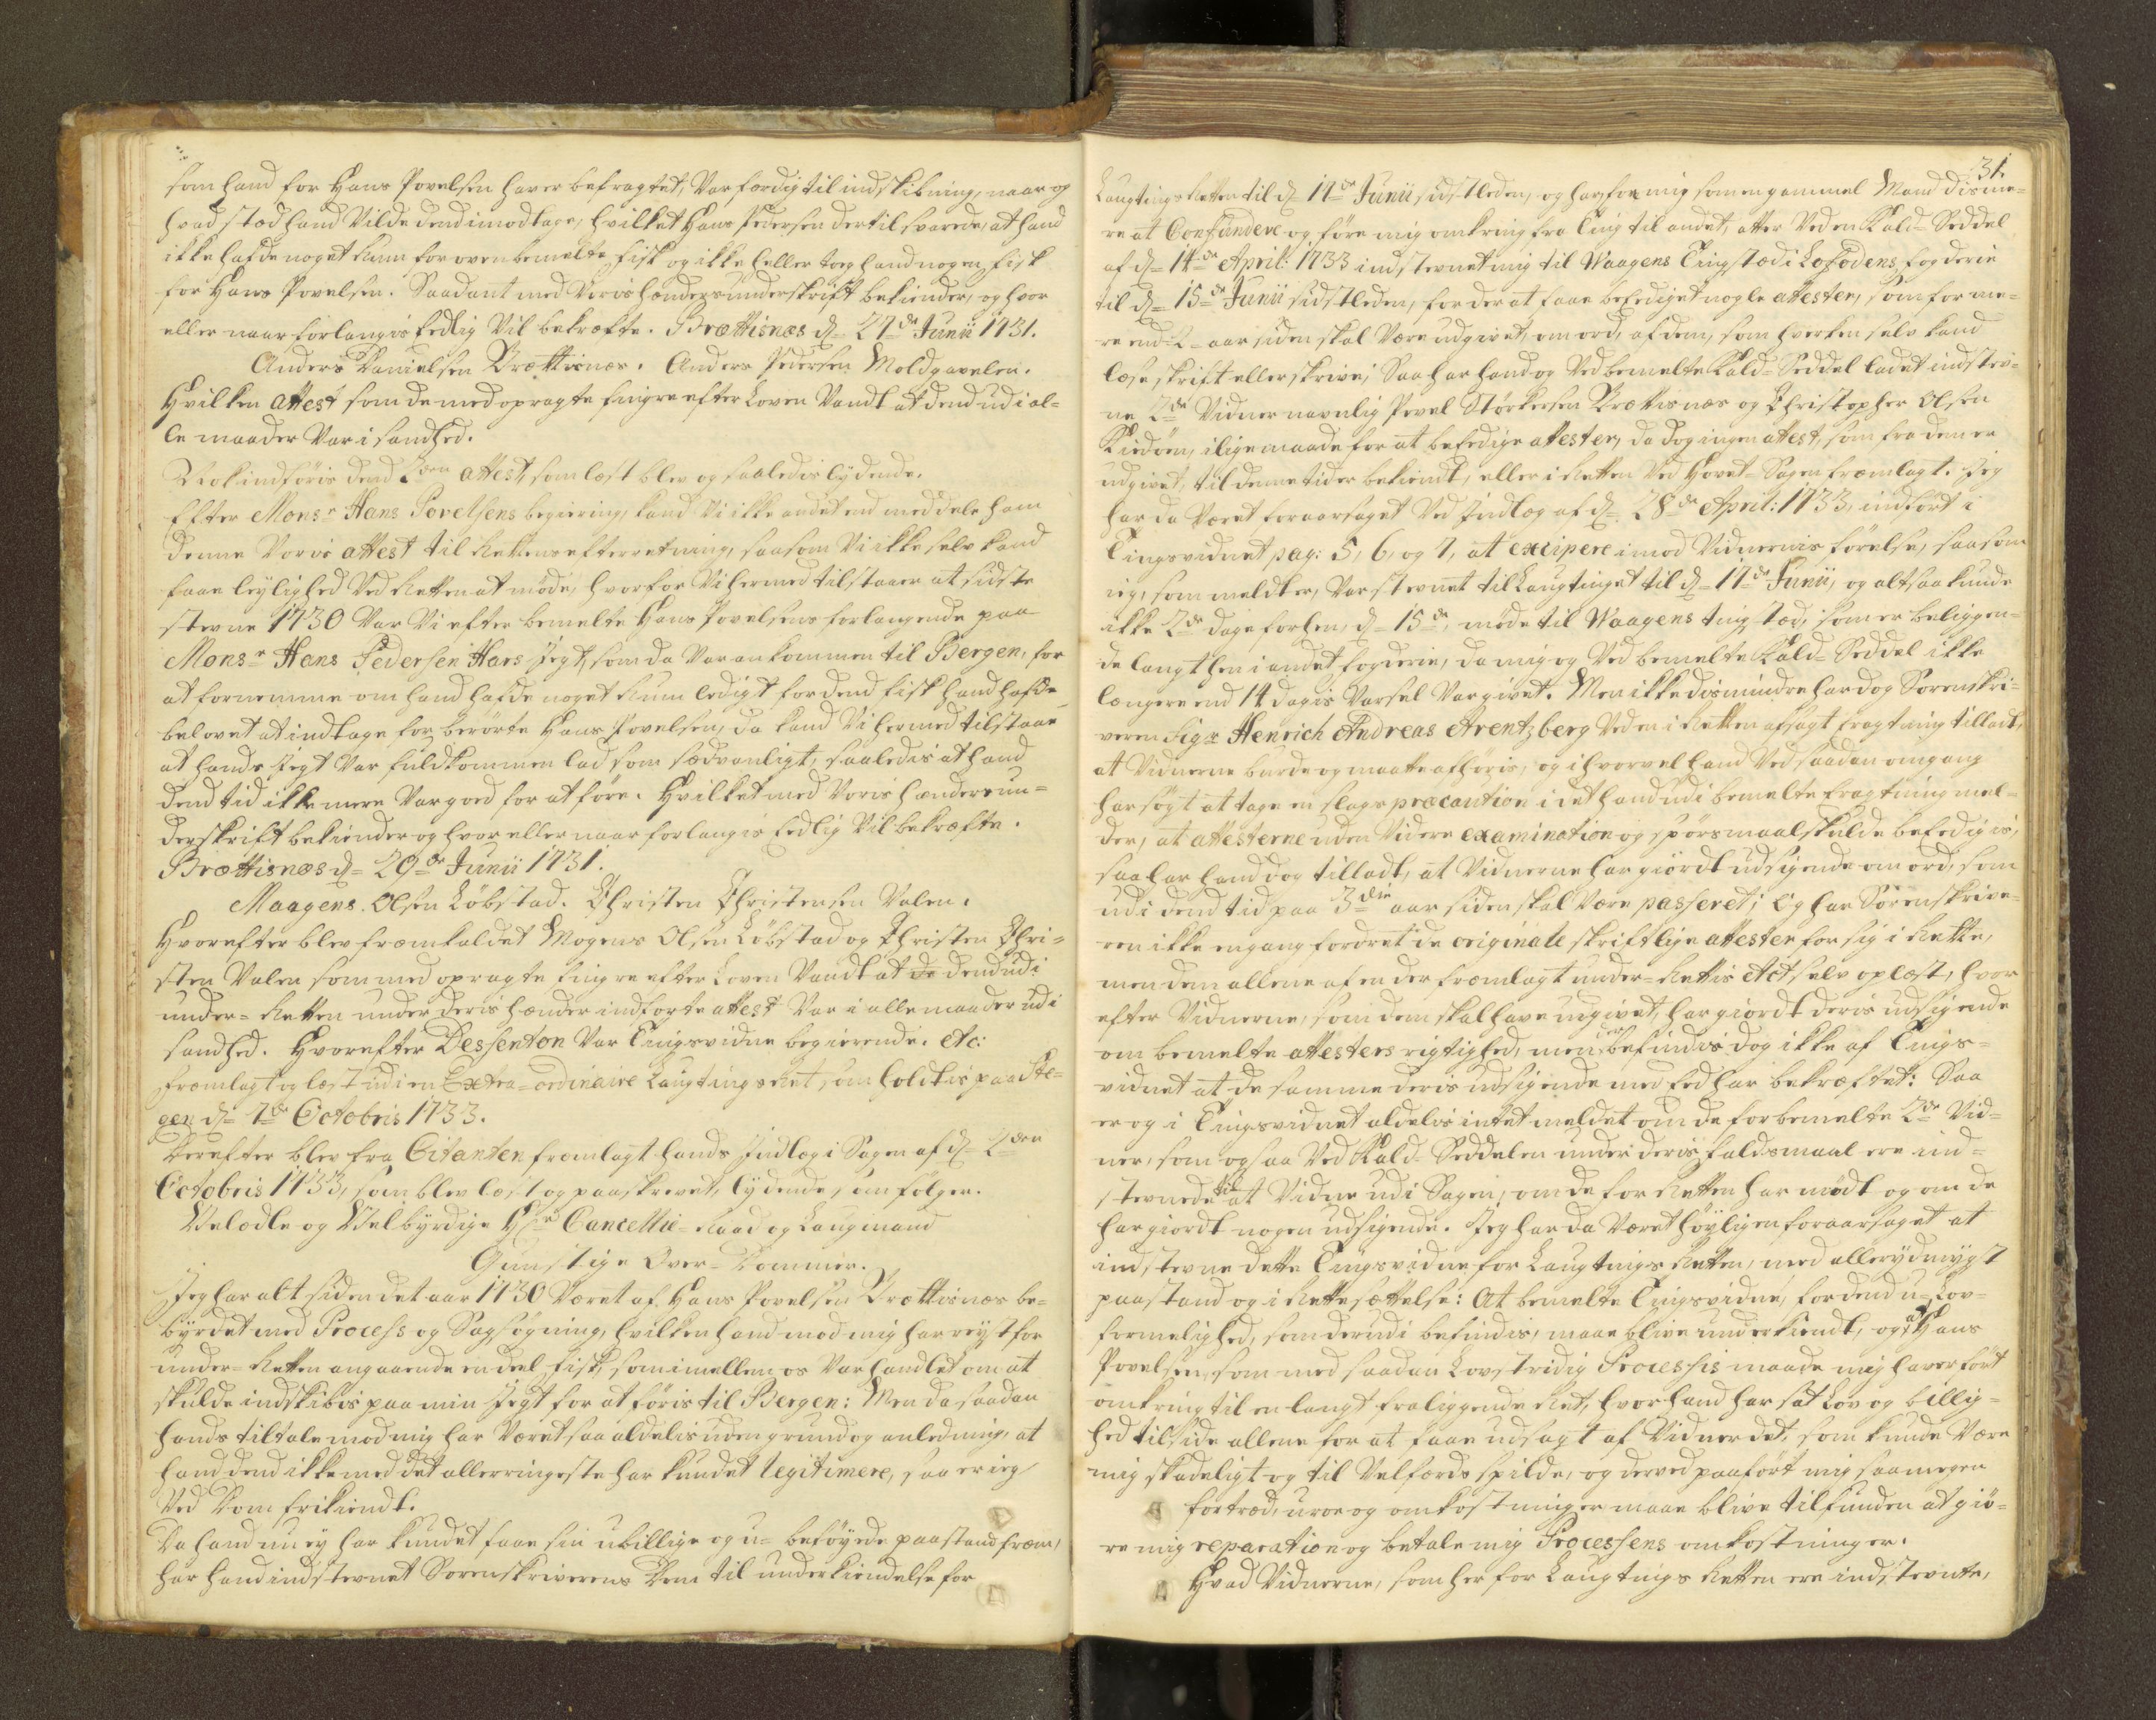 som hand for Hans Povelsen haver befragtet, Var færdig til indskibning, naar og
hvad stæd hand Vilde dend imodtage, hvilket Hans Pedersen dertil svarede, at hand
ikke hafde noget Rum for ovenbemelte fisk og ikke heller tog hand nogen fisk
for Hans Povelsen. Saadant med Voris hænders underskrift bekiender, og hvor
eller naar forlangis Eedlig Vil bekræfte. Brættisnæs d= 27de Junii 1731.
Anders Danielsen Brættisnæs. Anders Pedersen Moldgavelen.
Hvilken attest som de med opragte fingre efter Loven Vandt at dend udi al=
le maader Var i sandhed.
Nok indføris dend attest, som læst blev og saaledis lydende.
Efter Monsr Hans Povelsens begiering, kand Vi ikke andet end meddele ham
denne Voris attest til Rettens efterretning, saasom Vi ikke selv kand
faae leylighed Ved Retten at møde, hvorfor Vi hermed tilstaaer at sidste
stevne 1730 Var Vi efter bemelte Hans Povelsens forlangende paa
Monsr Hans Pedersen Hars Jegt, som da Var ankommen til Bergen, for
at fornemme om hand hafde noget Rum ledigt for dend fisk hand hafde
belovet at indtage for berørte Hans Povelsen, da kand Vi hermed tilstaae
at hands Jegt Var fuldkommen lad som sædvanligt, saaledis at hand
dend tid ikke mere Var goed for at føre. Hvilket med Voris hænders un=
derskrift bekiender og hvor eller naar forlangis Eedlig Vil bekræfte.
Brættisnæs d= 29de Junii 1731.
Maagens Olsen Løbstad. Christen Christensen Valen.
Hvorefter blev fremkaldet Mogens Olsen Løbstad og Christen Chri=
sten Valen som med opragte fingre efter Loven Vandt at de dend udi
under=Retten under deris hænder indførte attest Var i alle maader udi
sandhed. Hvorefter Dessenton Var Tingsvidne begierende. etc:
fremlagt og læst udi en Extra=ordinaire Laugtings Ret som holdtis paa Ste=
gen d= 7de Octobris 1733.
Derefter blev fra Citanten fremlagt hands Indlæg i Sagen af d= 2den
Octobris 1733, som blev læst og paaskrevet, lydende som følger.
Velædle og Velbyrdige Hr Cancellie=Raad og Laugmand
Gunstige Over=Dommer.
Jeg har alt siden det aar 1730 Været af Hans Povelsen Brættisnæs be=
byrdet med Process og Sagsøgning, hvilken hand mod mig har reyst for
under=Retten angaaende en deel fisk, som imellem os Var handlet om at
skulde indskibis paa min Jegt for at føris til Bergen: Men da saadan
hands tiltale mod mig har Været saa aldelis uden grund og anledning, at
hand dend ikke med det allerringeste har kundet legitimere, saa er ieg
Ved Dom frikiendt.
Da hand nu ey har kundet faae sin ubillige og u=beføyede paastand frem,
har hand indstevnet Sorenskriverens Dom til underkiendelse for
31.
Laugtings Retten til d= 17de Junii sidstleden, og har for mig som en gammel Mand
re at Confundere og føre mig omkring fra Ting til andet, atter Ved en Kald=Seddel
af d= 14de April: 1733 indstevnet mig til Waagens Tingstæd i Lofodens fogderie
til d= 15de Junii sidstleden, for der at faae beEediget nogle attester, som for me=
re end 2 aar siden skal Være udgivet, om ord, af dem, som hverken selv kand
læse skrift eller skrive, Saa har hand og Ved bemelte Kald=Seddel ladet indstev=
ne 2de Vidner navnlig Povel Størkersen Brættisnæs og Christopher Olsen
Kiedøen, i lige maade for at beEedige attester, da dog ingen attest, som fra dem er
udgivet, til denne tid er bekiendt, eller i Retten Ved Hovet=Sagen fremlagt. Jeg
har da Været foraarsaget Ved Indlæg af d= 28de April: 1733, indført i
Tingsvidnet pag: 5, 6, og 7, at excipere imod Vidnernis førelse, saasom
ieg, som meldt er, Var stevnet til Laugtinget til d= 17de Junii, og altsaa kunde
ikke 2de dage forhen, d= 15de, møde til Waagens tingstæd, som er beliggen=
de langt hen i andet fogderie, da mig og Ved bemelte Kald=Seddel ikke
længere end 14 dagis Varsel Var givet. Men ikke dismindre har dog Sorenskri=
veren Sigr Henrich Andreas Arentzberg Ved en i Retten afsagt fragtning tilladt,
at Vidnerne burde og maatte afhøris, og i hvorvel hand Ved saadan omgang
har søgt at tage en slags præcaution i det hand udi bemelte fragtning mel=
der, at attesterne uden Videre examination og spørsmaal skulde beEedigis,
saa har hand dog tilladt, at Vidnerne har giordt udsigende om ord, som
udi dend tid paa 3die aar siden skal Være passeret; Og har Sorenskrive=
ren ikke engang fordret de originale skriftlige attester for sig i Rette,
men dem allene af en der fremlagt under=Rettis Act selv oplæst, hvor
efter Vidnerne, som dem skal have udgivet, har giordt deris udsigende
om bemelte attesters rigtighed, men befindis dog ikke af Tings=
vidnet at de samme deris udsigende med Eed har bekræftet: Saa
er og i Tingsvidnet aldelis intet meldet om de forbemelte 2de Vid=
ner, som ogsaa Ved Kald=Seddelen under deris faldsmaal ere ind=
stevnede til at Vidne udi Sagen, om de for Retten har mødt og om de
har giordt nogen udsigende. Jeg har da Været høyligen foraarsaget at
indstevne dette Tingsvidne for Laugtings Retten, med allerydmygst
paastand og i Rettesættelse: At bemelte Tingsvidne, for dend u=Lov=
formelighed, som derudi befindis, maae blive underkiendt, og Hans
Povelsen, som med saadan Lovstridig Processis maade mig haver ført
omkring til en langt fraliggende Ret, hvor hand har sat Lov og billig=
hed til side allene for at faae udsagt af Vidner det, som kunde Være
mig skadeligt og til Velfærds spilde, og derved paaført mig saa megen
fortræd, uroe og omkostninger maae blive tilfunden at giø=
re mig reparation og betale mig Processens omkostninger.
Hvad Vidnerne, som her for Laugtings Retten ere indstevnte,